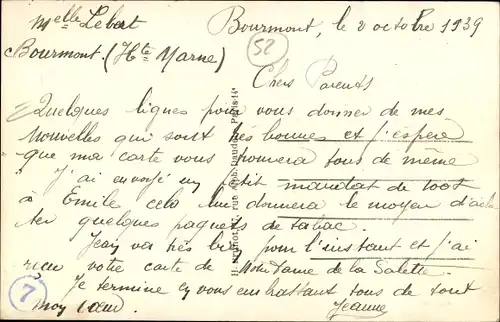 Melle Lebert
Bourmont, le 2 octobre 1939
Bourmont. (Hte Marne)
52
Chers Parents
Quelques lignes pour vous donner de mes
nouvelles qui sont très bonnes et j'espère
que ma carte vous trouvera tous de même
J'ai envoyé un petit mandat de 100f
à Emile cela lui donnera le moyen d'ache
ter quelques paquets de tabac
Jean va très bien pour l'instant et j'ai
reçu votre carte de Notre Dame de la Salette.
Je termine en vous embrassant tous de tout
mon cœur. Jeanne
7
Paris-14e